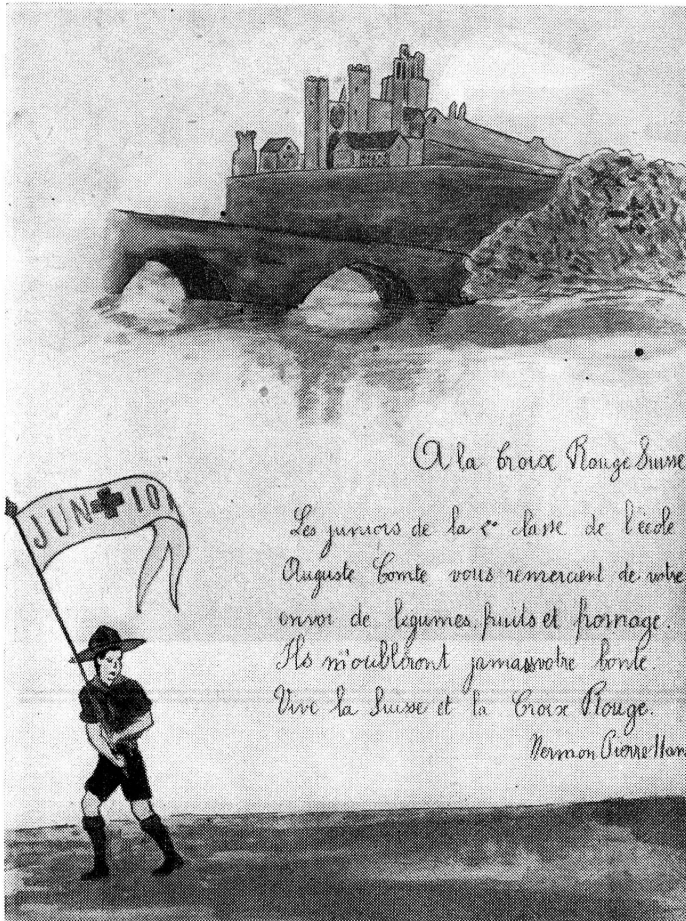 A la Croix Rouge Suisse
JUN+IOR
Les juniors de la 2e classe de l'école
Auguste Comte vous remercient de votre
envoi de légumes, fruits et fromage.
Ils n'oublîront jamais votre bonté.
Vive la Suisse et la Croix Rouge.
Pierre